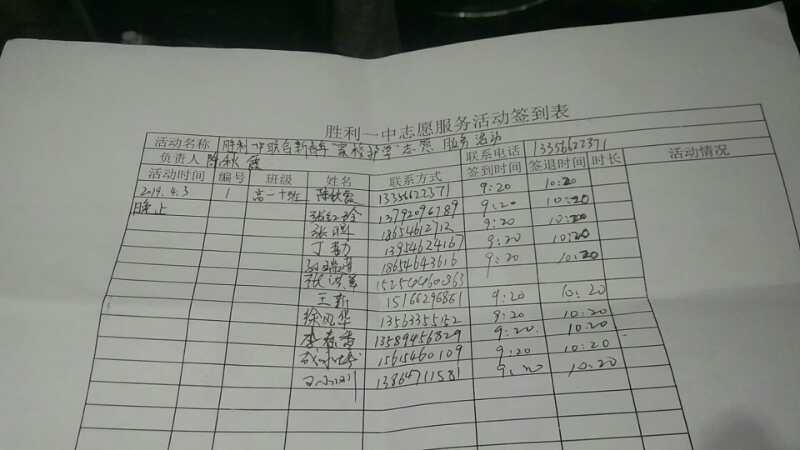 胜利一中志愿服务活动签到表
活动名称 胜利一中联合新 家校护学 志愿服务活动
负责人 陈秋霞 联系电话 13356622371
活动时间 编号 班级 姓名 联系方式 签到时间 签退时间 时长 活动情况
2019.4.3 1 高一十班 陈秋霞 13356622371 9:20 10:20
晚上 13792096789 9:20 10:20
张 18654612712 9:20 10:20
丁勤 13954624167 9:20 10:20
18654643616 9:20 10:20
张洪
王新 15166296861 9:20 10:20
徐风华 13563355152 9:20 10:20
李春香 13589456829 9:20 10:20
15615460109 9:20 10:20
13864711581 10:20